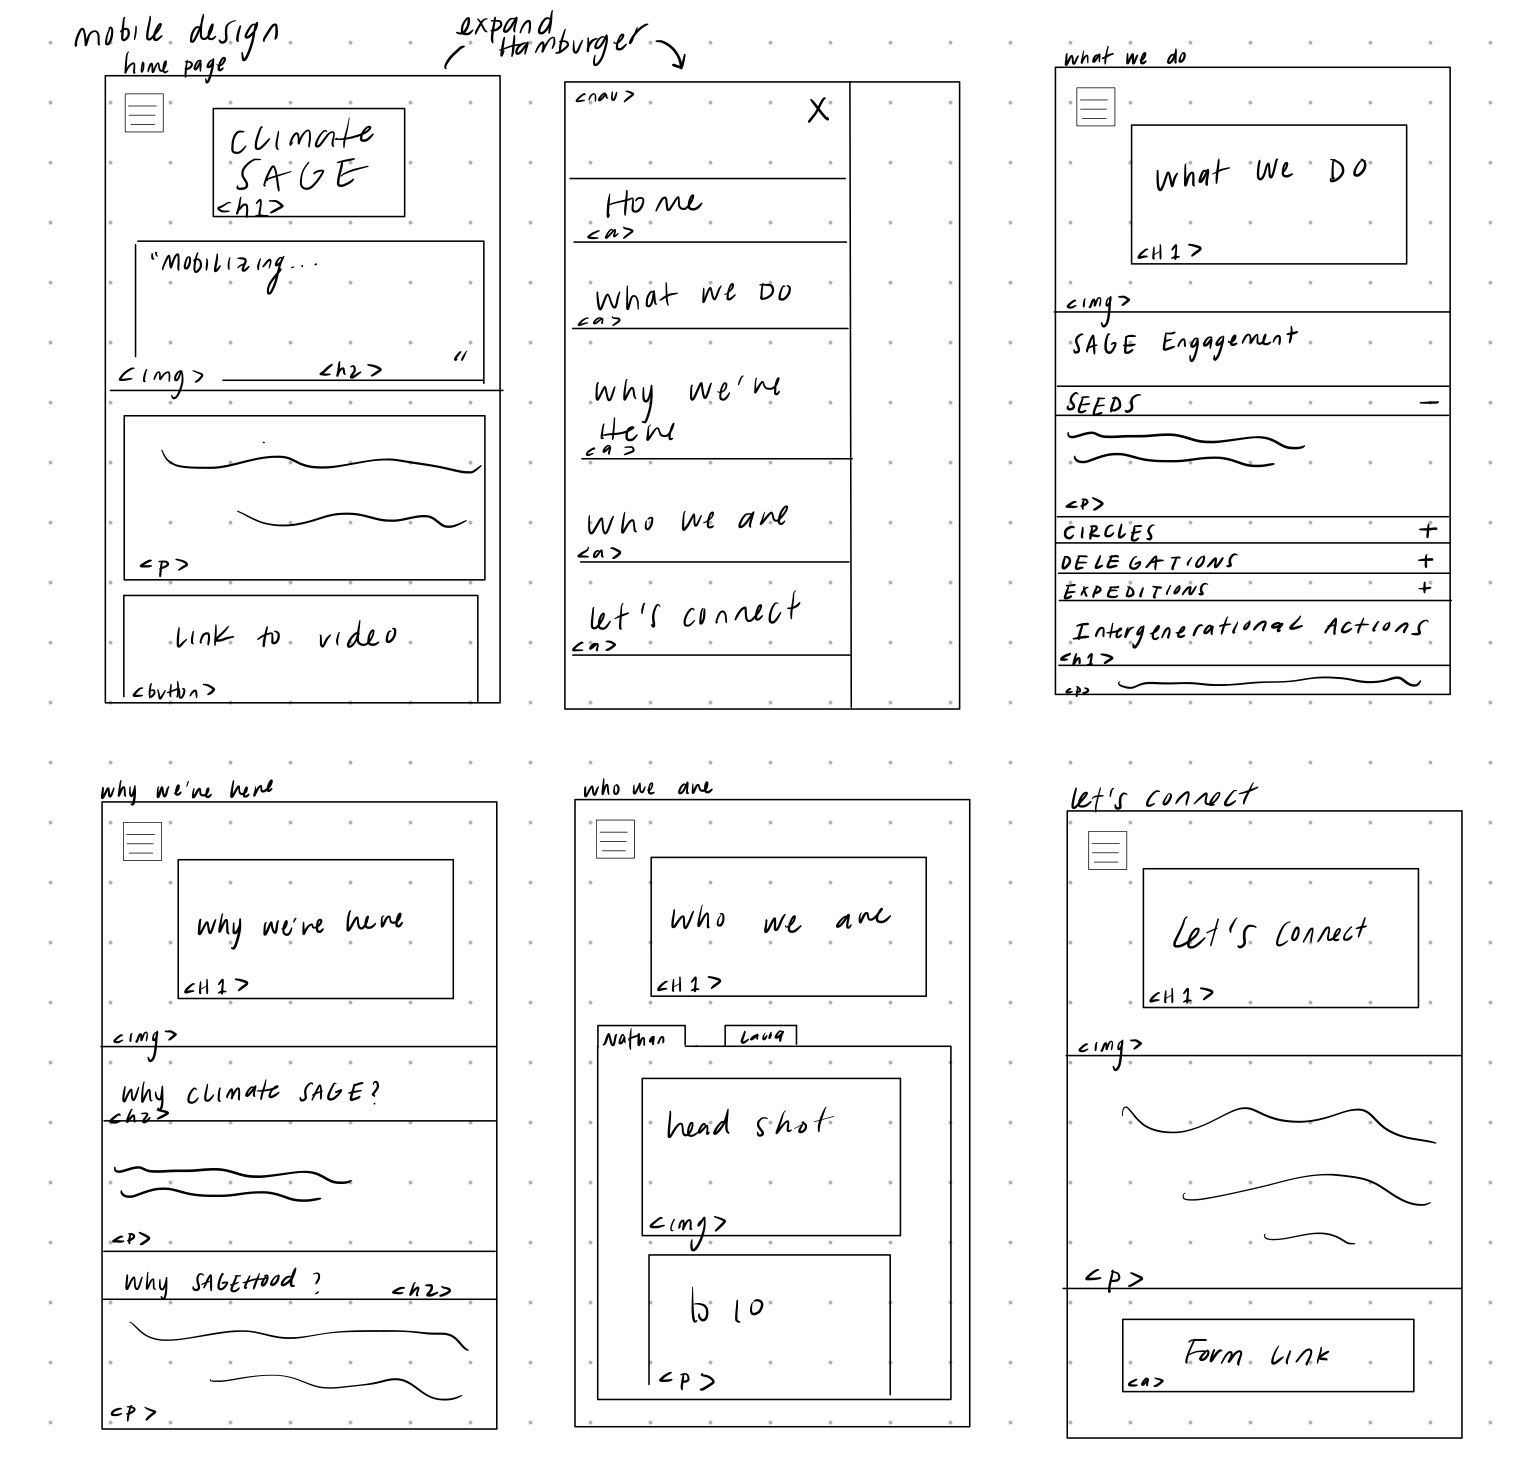 mobile design
home page
CLimate
SAGE
<h1>
"Mobilizing...
"
<img>
<h2>
<p>
Link to video
<button>
expand
Hamburger
<nav>
X
Home
<a>
What we Do
<a>
Why we're
Here
<a>
Who we are
<a>
let's connect
<a>
what we do
What We DO
<H1>
<img>
SAGE Engagement
SEEDS −
<p>
CIRCLES +
DELEGATIONS +
EXPEDITIONS +
Intergenerational Actions
<h1>
<p>
why we're here
Why we're here
<H1>
<img>
Why CLimate SAGE?
<h2>
<p>
Why SAGEHood? <h2>
<p>
who we are
Who we are
<H1>
Nathan Laura
head shot
<img>
bio
<p>
let's connect
Let's connect
<H1>
<img>
<p>
Form Link
<a>